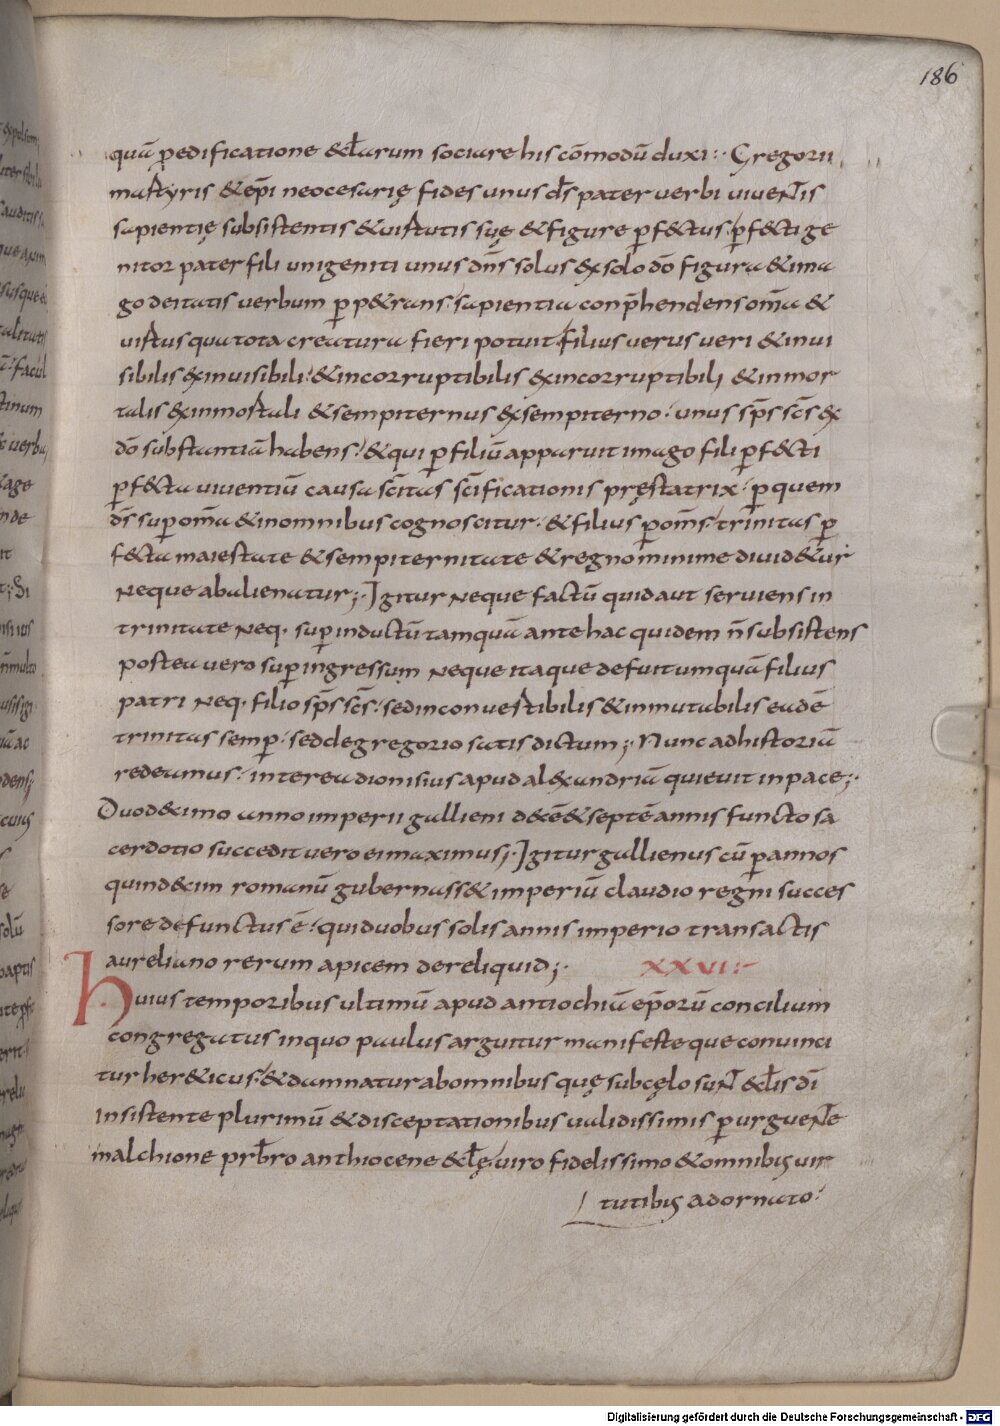 186
quā p̱edificatione &ct̄arum sociare his cōmodū duxi:· Gregorii
martyris & ep̄i neocesarię fides unus d̄s pater verbi viventis
sapientię subsistentis & virtutis suę & figure p̱fectus p̱fecti ge
nitor pater fili unigeniti unus dn̄s solus ex solo dō figura & ima
go deitatis verbum p̱p&rans sapientia conp̄hendens om̄a &
virtus qua tota creatura fieri potuit filius verus veri & invi
sibilis ex invisibili & incorruptibilis ex incorruptibili & inmor
talis ex inmortali & sempiternus ex sempiterno. unus sp̄s sc̄s ex
dō substantiā habens. & qui p̱ filiū apparuit imago fili p̱fecti
p̱fecta viventiū causa sc̄itas sc̄ificationis pręstatrix. p̱ quem
d̄s sup̱ om̄a & in omnibus cognoscitur. & filius p̱ om̄s. trinitas p̱
fecta maiestate & sempiternitate & regno minime divid&ur
neque abalienatur;· Igitur neque factū quid aut serviens in
trinitate neq· sup̱inductū tamquā ante hac quidem n̄ subsistens
postea vero sup̱ingressum neque itaque defuit umquā filius
patri neq· filio sp̄s sc̄s. sed inconvertibilis & inmutabilis eadē
trinitas semp̱. sed de gregorio satis dictum; Nunc ad historiā
redeamus. interea dionisius apud alexandriā quievit in pace;·
Duodecimo anno imperii gallieni dec̄ē & septē annis functo sa
cerdotio succedit vero ei maximus;· Igitur gallienus cū p̱ annos
quindecim romanū gubernass& imperiū claudio regni succes
sore defunctus ē. qui duobus solis annis imperio transactis
aureliano rerum apicem dereliquid;· XXVI:~
huius temporibus ultimū apud antiochiā ep̄orū concilium
congregatus in quo paulus arguitur manifesteque convinci
tur her&icus. & damnatur ab omnibus quę sub cęlo sunt &cl̄is dī
insistente plurimū & disceptationibus validissimis p̱urguente
malchione prb̄ro anthiocene &cl̄ę viro fidelissimo & omnibus vir
tutibus adornato.
Digitalisierung gefördert durch die Deutsche Forschungsgemeinschaft - DFG